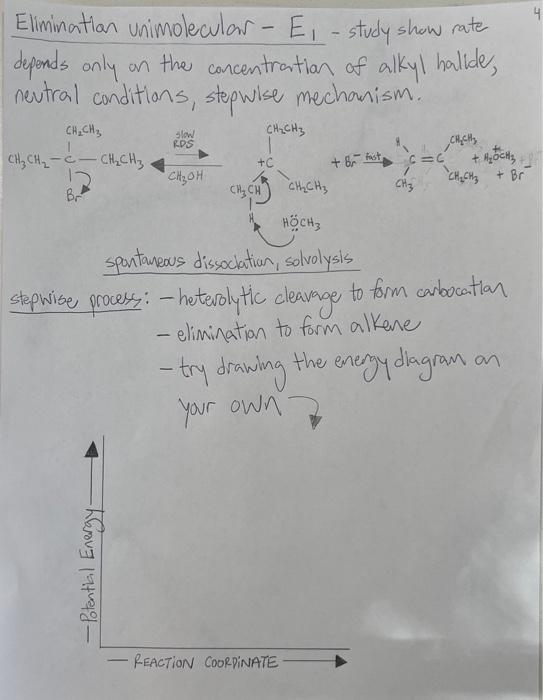 4
Elimination unimolecular - E₁ - study show rate
depends only on the concentration of alkyl halide,
neutral conditions, stepwise mechanism.
CH₂CH₃ slow RDS CH₂CH₃
CH₃CH₂-C-CH₂CH₃ CH₃OH +C + Br⁻ fast H C=C CH₂CH₃ + H₂ÖCH₃
Br CH₃CH CH₂CH₃ CH₃ CH₂CH₃ + Br⁻
H HÖCH₃
spontaneous dissociation, solvolysis
stepwise process: - heterolytic cleavage to form carbocation
- elimination to form alkene
- try drawing the energy diagram on
your own
Potential Energy
REACTION COORDINATE